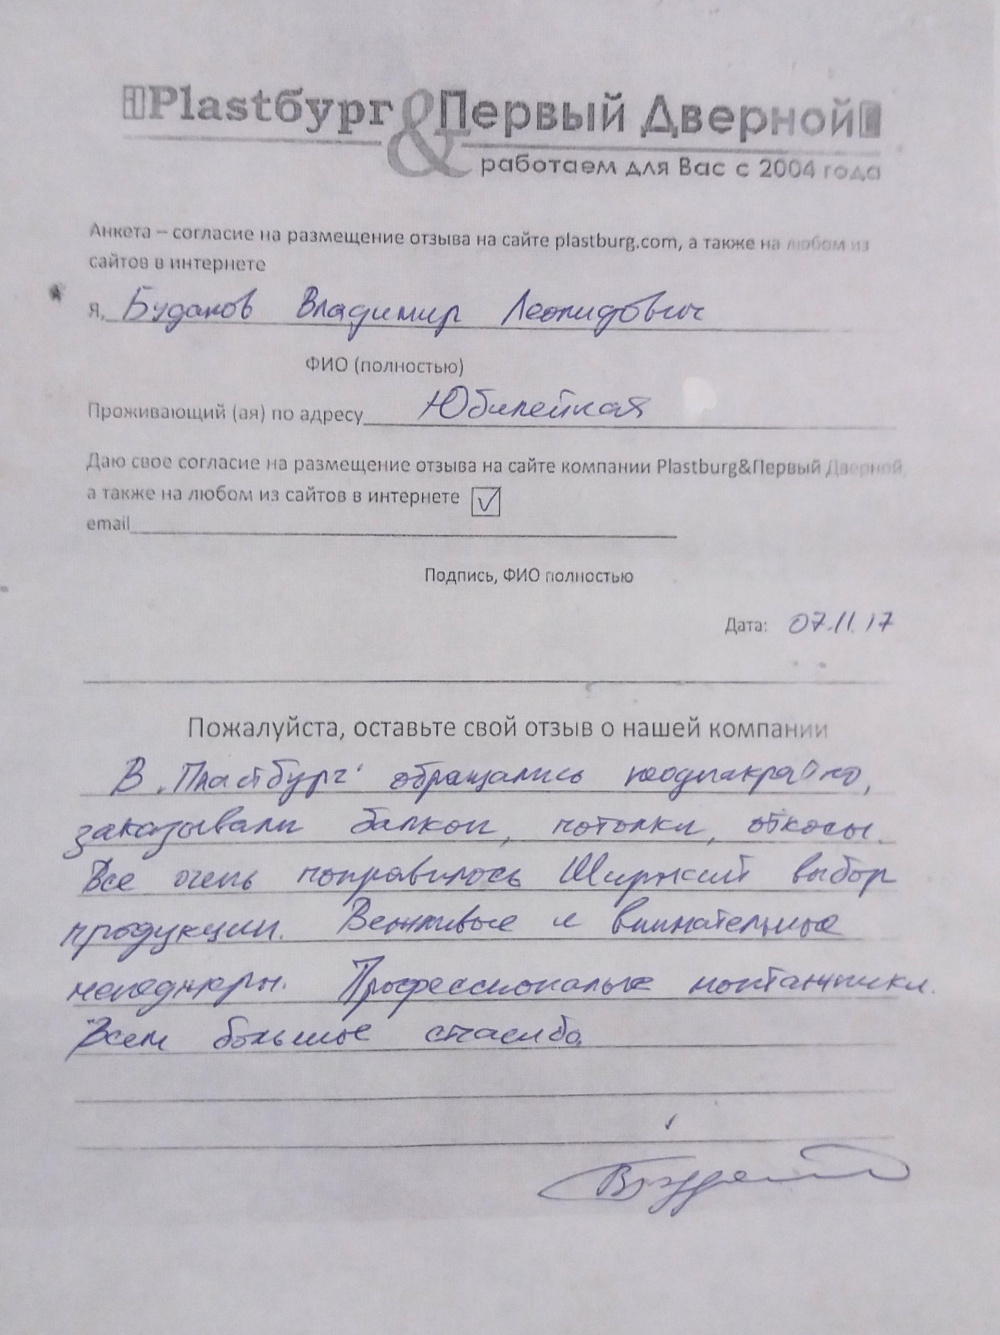 Plastбург & Первый Дверной
работаем для Вас с 2004 года
Анкета – согласие на размещение отзыва на сайте plastburg.com, а также на любом из
сайтов в интернете
Я, Буданов Владимир Леонидович
ФИО (полностью)
Проживающий (ая) по адресу Юбилейная
Даю свое согласие на размещение отзыва на сайте компании Plastburg&Первый Дверной,
а также на любом из сайтов в интернете
email
Подпись, ФИО полностью
Дата: 07.11.17
Пожалуйста, оставьте свой отзыв о нашей компании
В "Пластбург" обращались неоднакратно,
заказывали балкон, потолки, откосы.
Все очень понравилось Широкий выбор
продукции. Вежливые и внимательные
менеджеры. Профессиональные монтажники.
Всем большое спасибо.